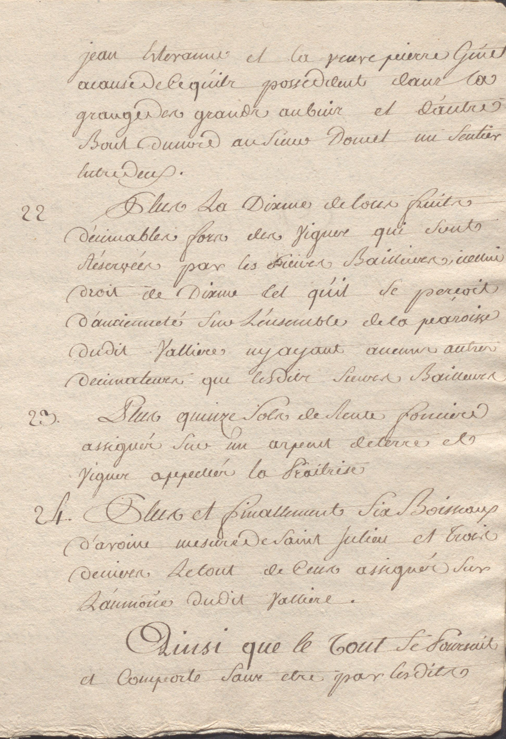 jean et la veuve pierre
a cause de ce qu'ils possedent dans la
grange des grands aubuis et d'autre
Bout du nord au sieur Douet un sentier
entre deux.
22 Plus La Dixme de tous fruits
décimables fors des vignes qui sont
Réservées par les sieurs Bailleurs,
droit de Dixme tel qu'il se perçoit
d'ancienneté sur L'ensemble de la paroisse
dudit Valliere n'y ayant aucuns autres
decimateurs que lesdits sieurs Bailleurs
23. Plus quinze sols de Rente fonciere
assignés sur un arpent de terre et
vigne appellée la
24. Plus et finallement six Boisseaux
d'avoine mesure de saint Julien et trois
deniers Le tout de Cens assignés sur
L'aumône dudit Valliere.
Ainsi que le Tout se Poursuit
et Comporte sans etre par lesdits